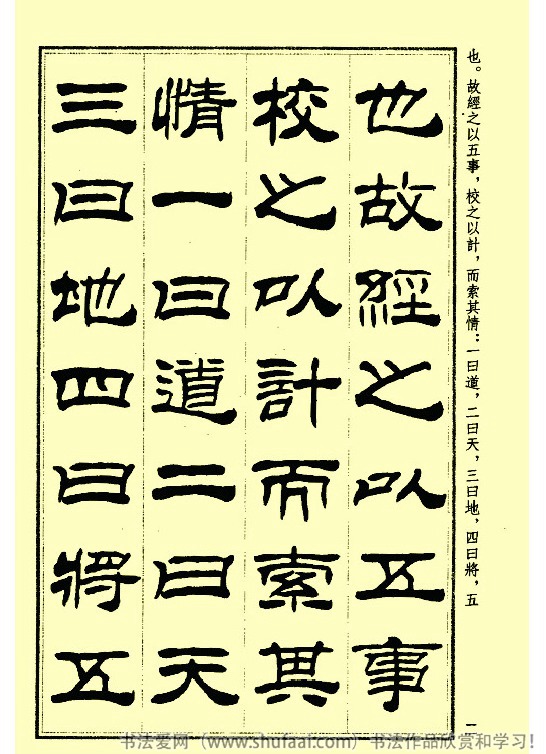 也。故經之以五事，校之以計，而索其情：一曰道，二曰天，三曰地，四曰將，五
也故經之以五事
校之以計而索其
情一曰道二曰天
三曰地四曰將五
书法爱网（www.shufaai.com）书法作品欣赏和学习！